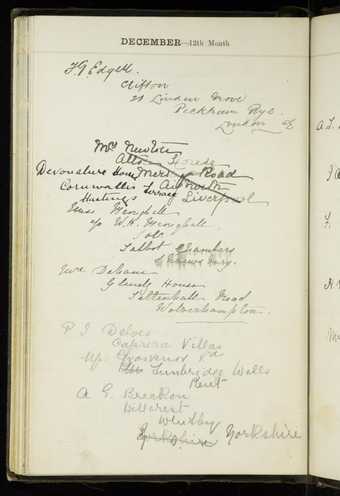 DECEMBER—12th Month
F. G. Edgell.
Clifton
21 Linden Grove
Peckham Rye.
London SE
Mrs Newton
Alton House
Devonshire House Road
Cornwallis Terrace Ainsworth
Hastings Liverpool
Miss Meonghall
c/o W. H. Meonghall
Talbot Chambers
Shrewsbury.
Glend House
Tettenhall Road
Wolverhampton.
P J Delves
Caprera Villas
Up. Grosvenor Rd
Tunbridge Wells
Kent
A G Breckon
Hillcrest
Whitby
Yorkshire Yorkshire